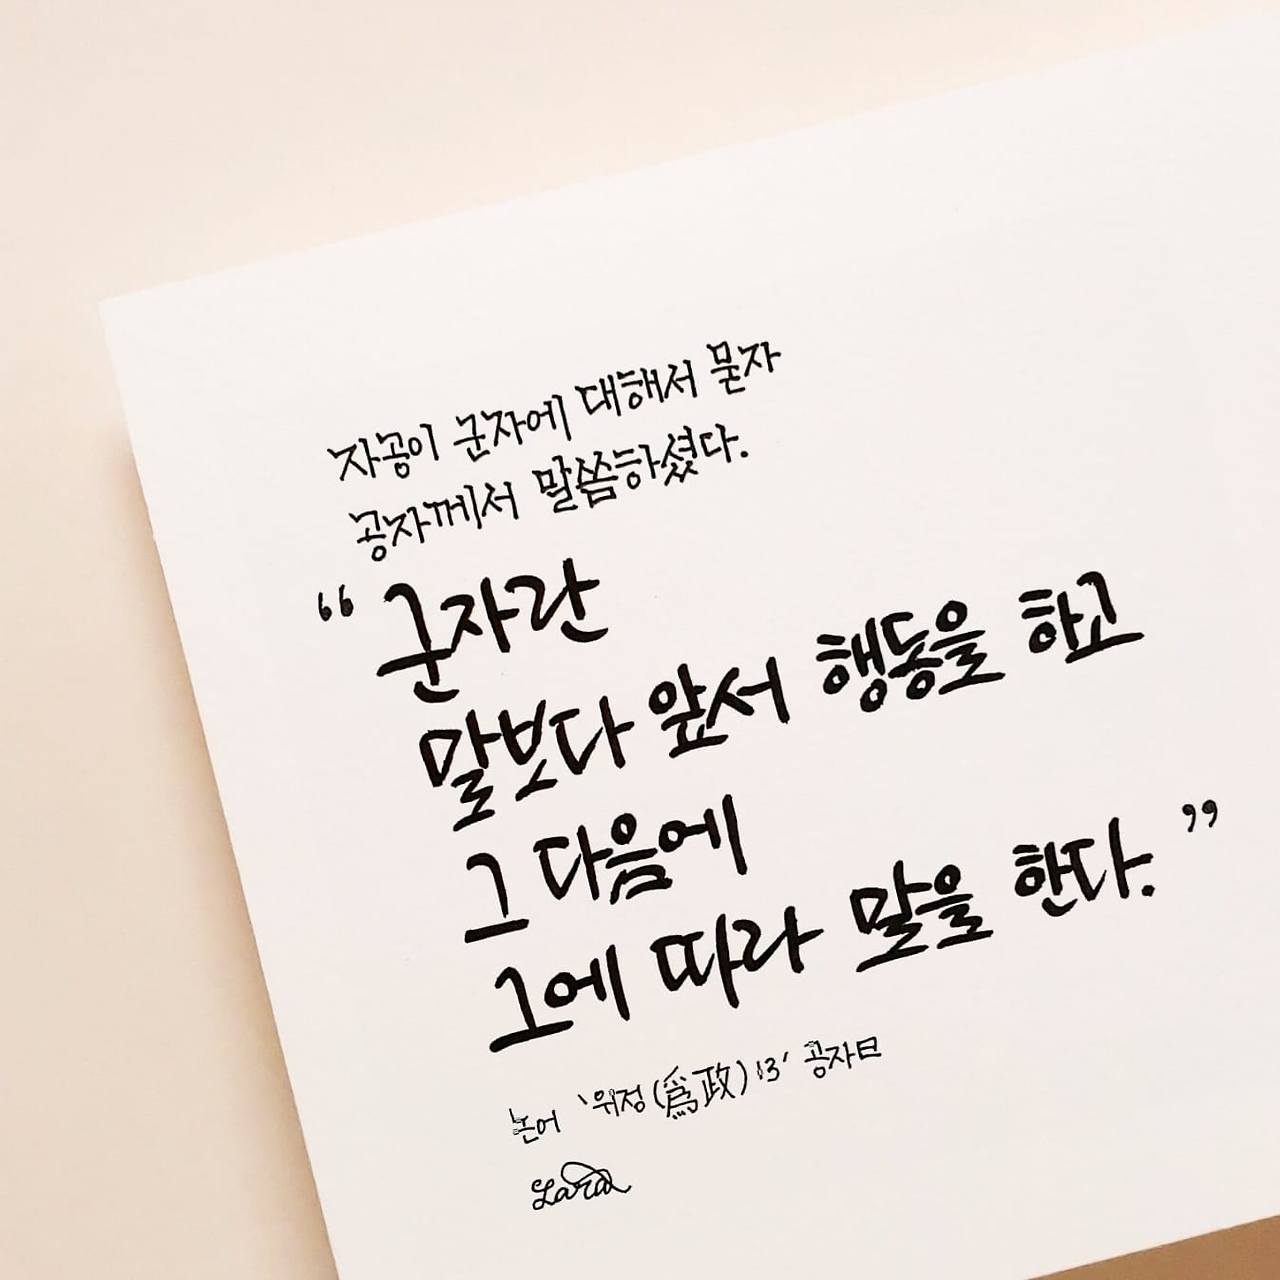 자공이 군자에 대해서 묻자
공자께서 말씀하셨다.
“군자란
말보다 앞서 행동을 하고
그 다음에
그에 따라 말을 한다.”
논어 '위정(爲政)13' 공자曰
Lara